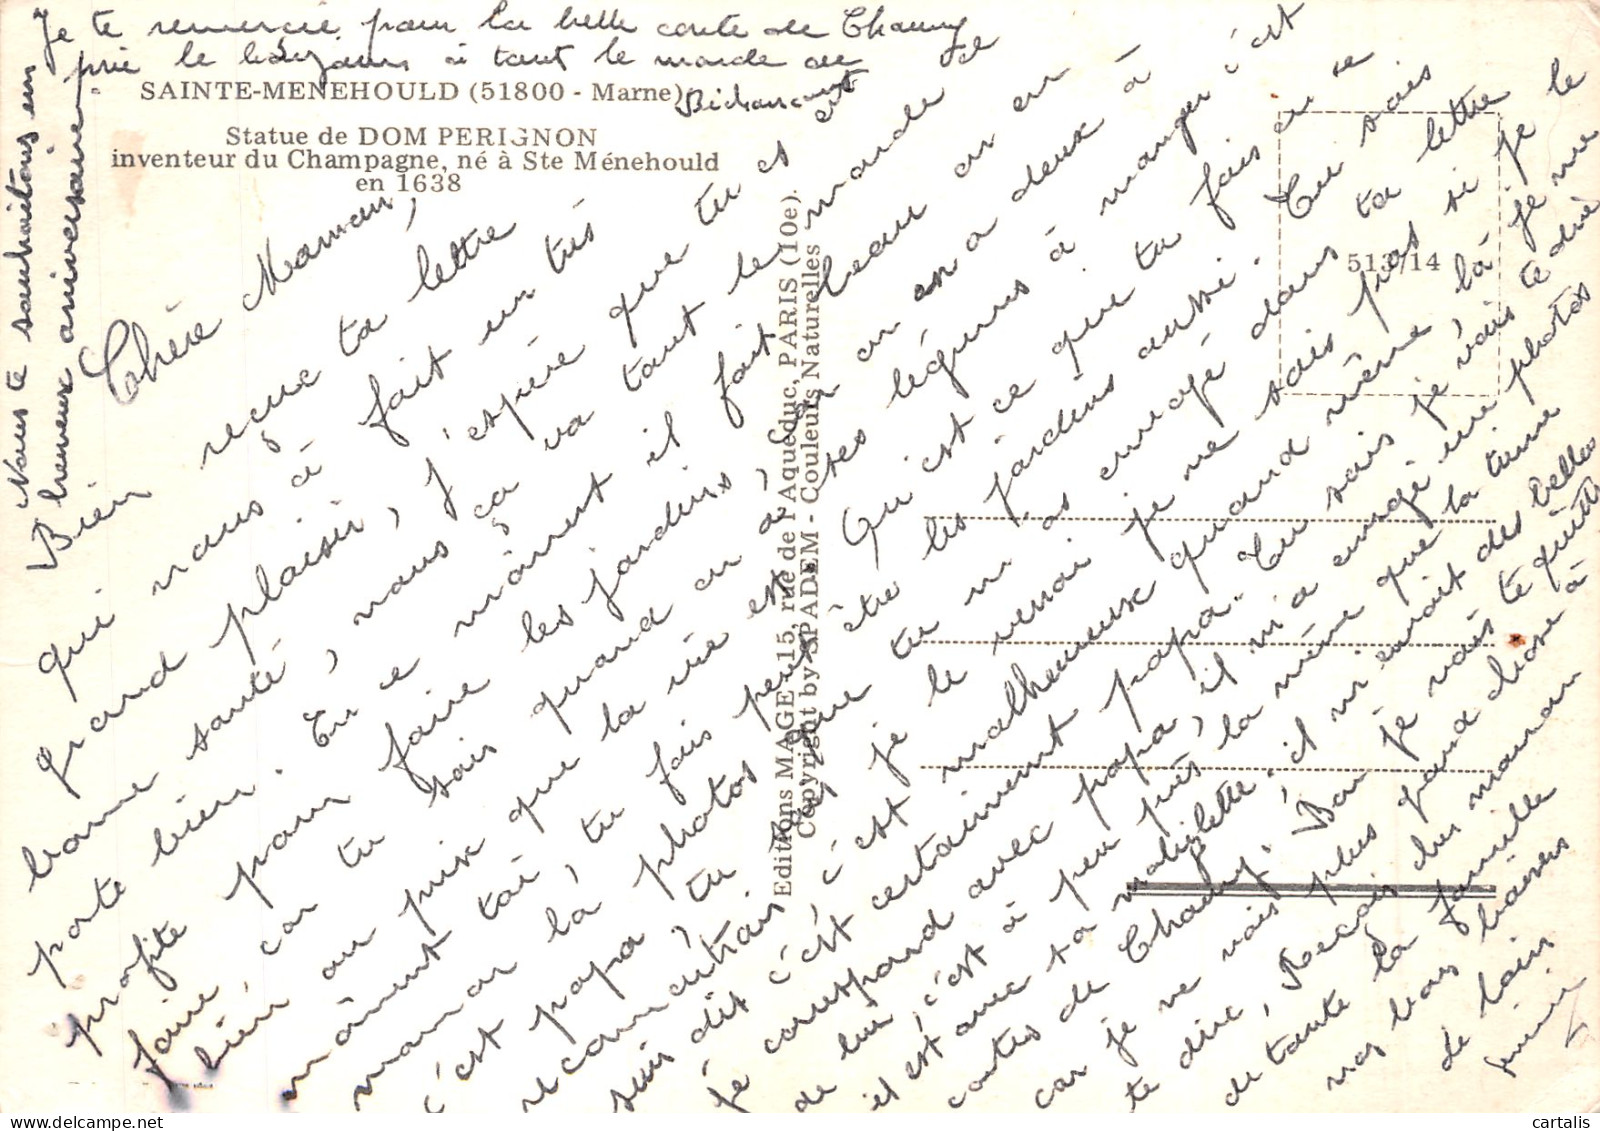 Je te remercie pour la belle carte de Chauny
prie le bonjour à tout le monde de
Bichancourt
SAINTE-MENEHOULD (51800 - Marne)
Statue de DOM PERIGNON
inventeur du Champagne, né à Ste Ménehould
en 1638
Nous te souhaitons un
heureux anniversaire
Chère Maman,
Bien reçue ta lettre
qui nous à fait un très
grand plaisir, j'espère que tu est
bonne santé, nous ça va tout le monde
porte bien. En ce moment il fait beau on en
profite pour faire les jardins,
faire, car tu sais quand on a deux à
bien au prix que la vie est ses légumes à manger c'est
moment toi, tu fais peut être les jardins aussi. Qu'est ce que tu fais en ce
maman là photos que tu m'as envoyé dans ta lettre Tu sais
c'est papa, tu je le verrai je ne sais pas si je le
reconnaîtrais c'est malheureux quand même là je me
suis dit c'est certainement papa. Tu sais je vais te dire
je correspond avec papa, il m'a envoyé une photos
de lui, c'est à peu près la même que la tienne
il est avec sa mobylette. il m'envoit des belles
cartes de Chauny. Bon je vais te quitter
car je ne vais plus quand chose à
te dire, Reçois chu maman
de toute la famille
nos bons baisers
de loin
Editions MAGE - 15, rue de l'Aqueduc, PARIS (10e).
Copyright by SPADEM - Couleurs Naturelles
513/14
cartalis